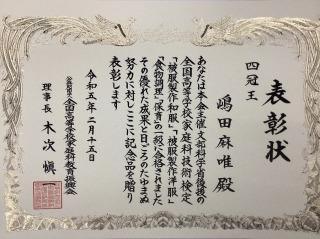 表彰状
四冠王
嶋田麻唯殿
あなたは本会主催文部科学省後援の
全国高等学校家庭科技術検定
「被服製作和服」「被服製作洋服」
「食物調理」「保育」の一級に合格されました
その優れた成果と日ごろのたゆまぬ
努力に対しここに記念品を贈り
表彰します
令和五年二月十五日
公益財団法人全国高等学校家庭科教育振興会
理事長 木次愼